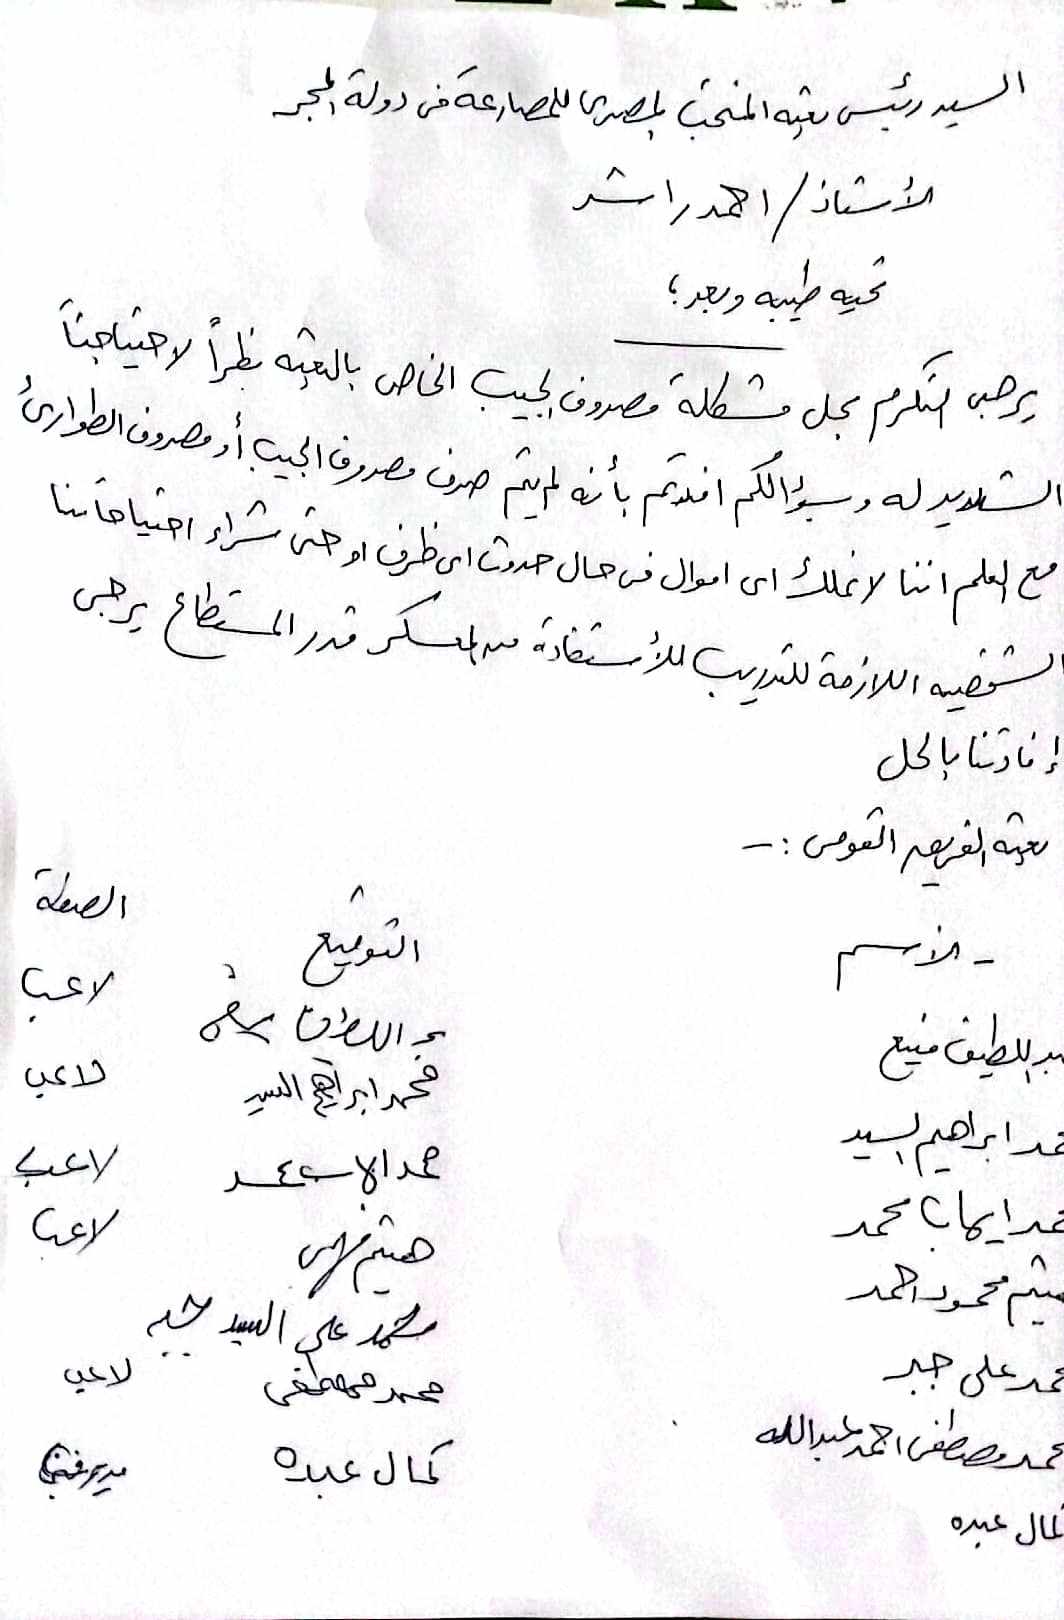 السيد رئيس بعثه المنتخب المصرى للمصارعة فى دولة المجر
الأستاذ / احمد راشد
تحيه طيبه وبعد ؛
يرجى التكرم بحل مشكلة مصروف الجيب الخاص بالبعثه نظراً لاحتياجنا
الشديد له وبسؤالكم افدتم بأنه لم يتم صرف مصروف الجيب أو مصروف الطوارئ
مع العلم اننا لا نملك اى اموال فى حال حدوث اى ظرف او حتى شراء احتياجاتنا
الشخصيه اللازمة للتدريب للأستفادة من المعسكر قدر المستطاع يرجى
إفادتنا بالحل
بعثه الفريق القومى :-
- الأسم التوقيع الصفة
عبد اللطيف منيع عبد اللطيف لاعب
محمد ابراهيم السيد محمد ابراهيم السيد لاعب
محمد ايهاب محمد لاعب
هيثم محمود احمد هيثم فهمى لاعب
محمد على جبر محمد على السيد
محمد مصطفى احمد عبدالله محمد مصطفى لاعب
كمال عبده كمال عبده مدير فنى